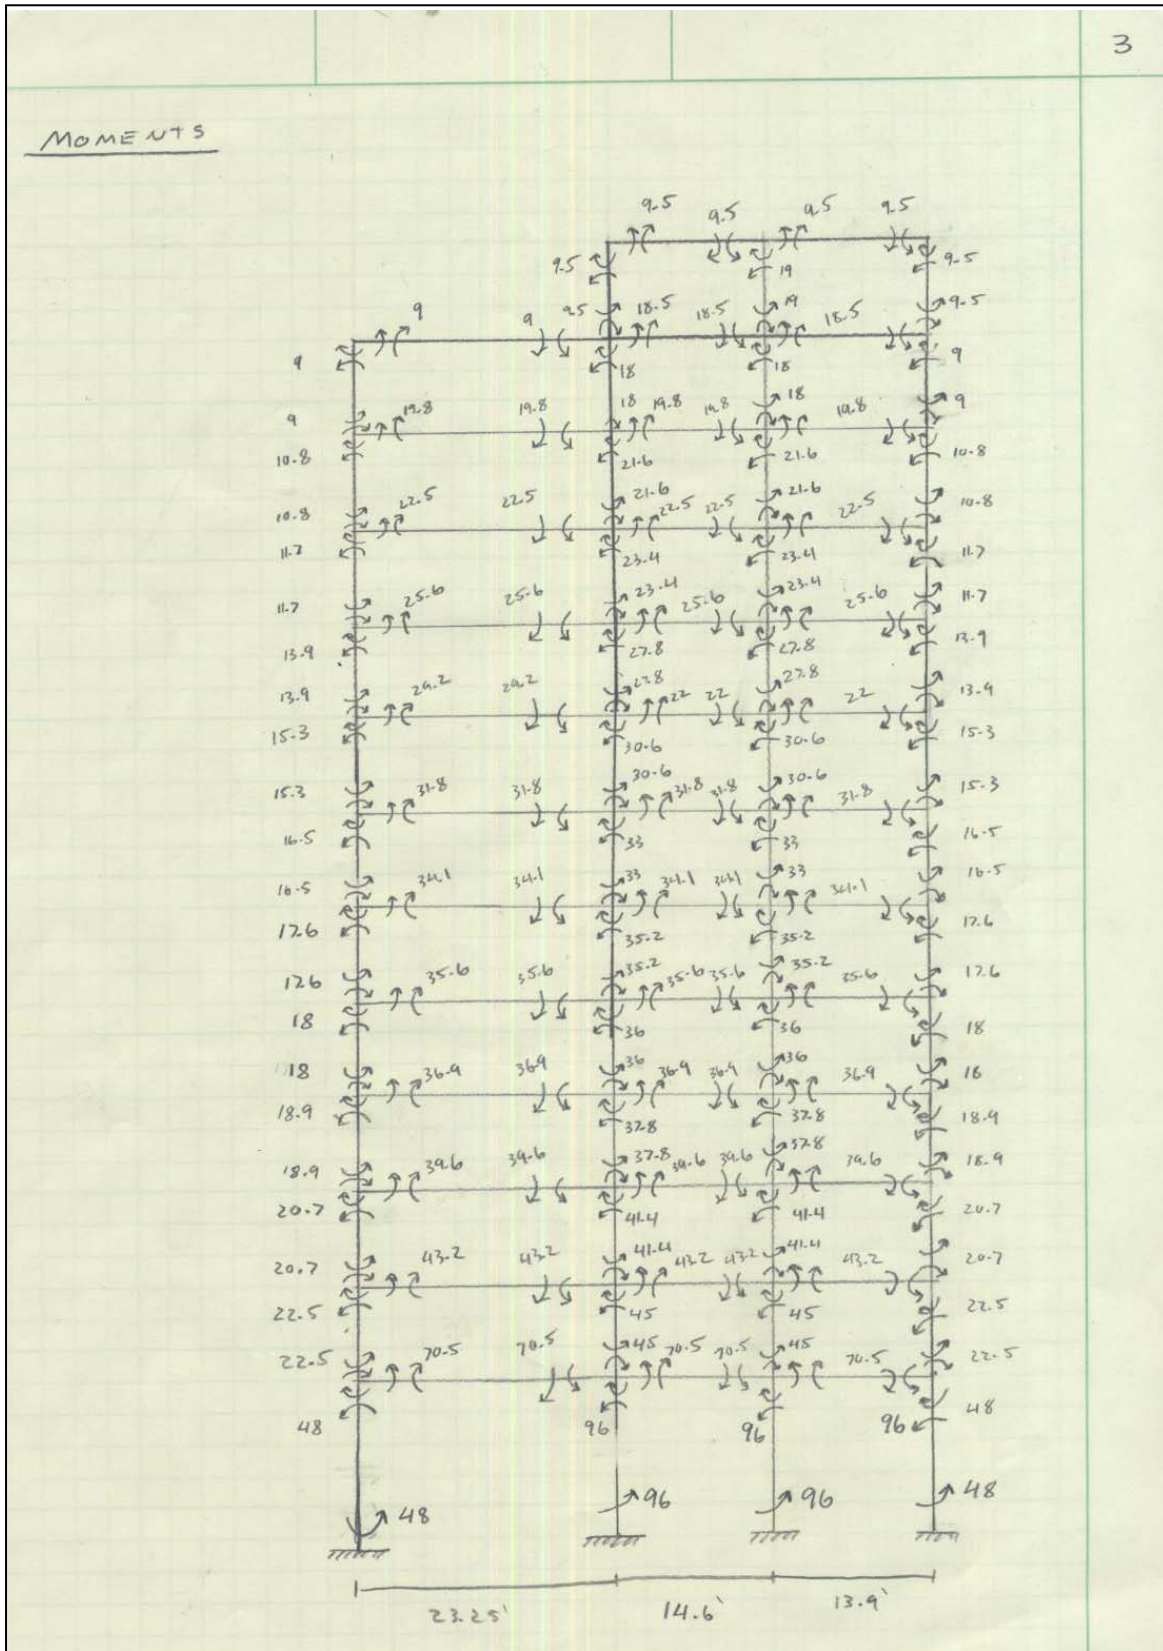 3
MOMENTS
9.5 9.5 9.5 9.5
9.5 19 9.5
9 9 9.5 18.5 18.5 19 18.5 9.5
9 18 18 9
9 19.8 19.8 18 19.8 19.8 18 19.8 9
10.8 21.6 21.6 10.8
10.8 22.5 22.5 21.6 22.5 22.5 21.6 22.5 10.8
11.7 23.4 23.4 11.7
11.7 25.6 25.6 23.4 25.6 23.4 25.6 11.7
13.9 27.8 27.8 13.9
13.9 29.2 29.2 27.8 22 22 27.8 22 13.9
15.3 30.6 30.6 15.3
15.3 31.8 31.8 30.6 31.8 31.8 30.6 31.8 15.3
16.5 33 33 16.5
16.5 34.1 34.1 33 34.1 34.1 33 34.1 16.5
17.6 35.2 35.2 17.6
17.6 35.6 35.6 35.2 35.6 35.6 35.2 35.6 17.6
18 36 36 18
18 36.9 36.9 36 36.9 36.9 36 36.9 18
18.9 37.8 37.8 18.9
18.9 39.6 39.6 37.8 39.6 39.6 37.8 39.6 18.9
20.7 41.4 41.4 20.7
20.7 43.2 43.2 41.4 43.2 43.2 41.4 43.2 20.7
22.5 45 45 22.5
22.5 70.5 70.5 45 70.5 70.5 45 70.5 22.5
48 96 96 96 48
48 96 96 48
23.25' 14.6' 13.9'